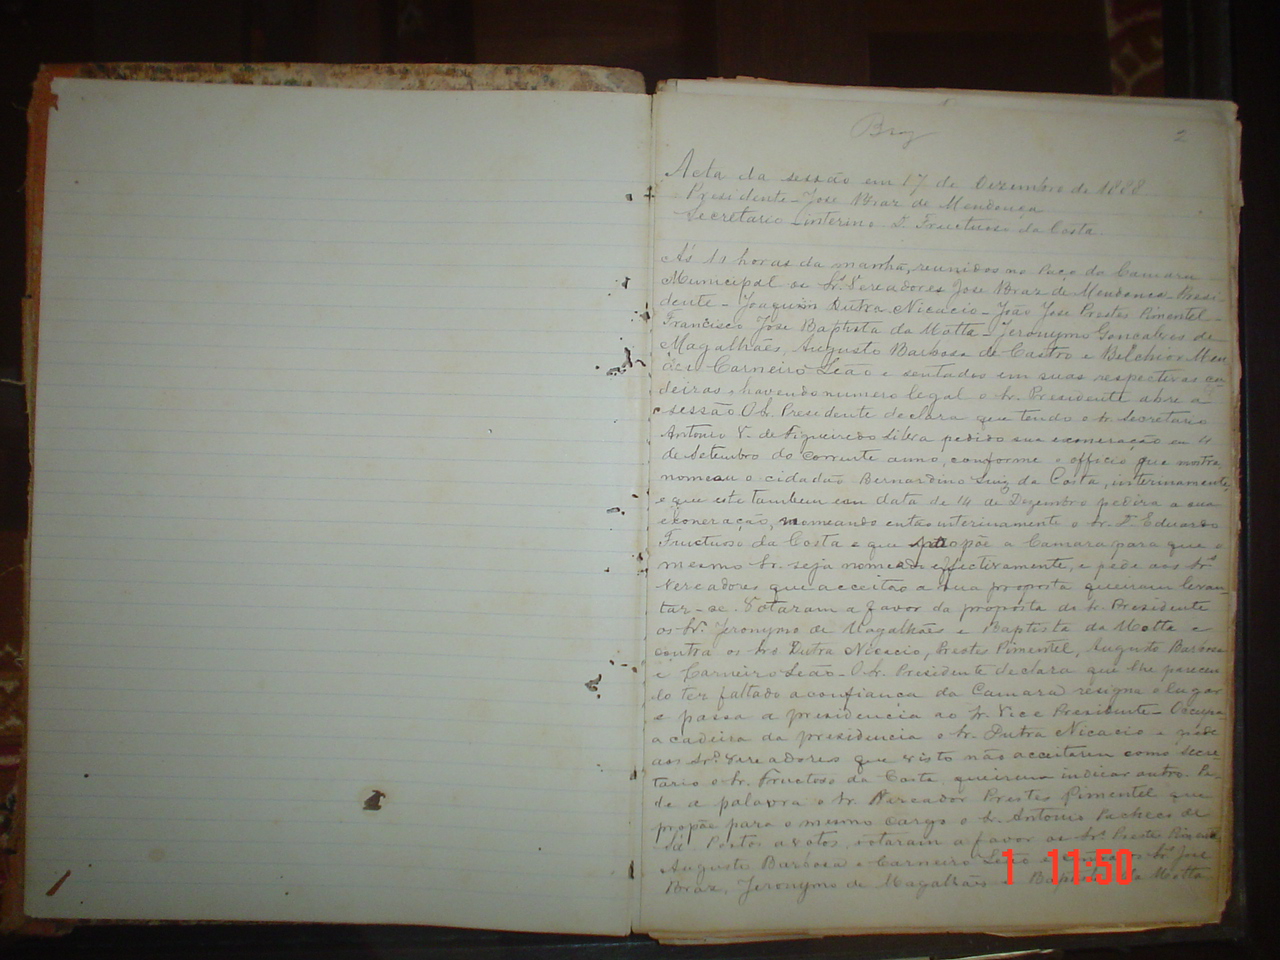 Braz
2
Acta da sessão em 17 de Dezembro de 1888
Presidente - Jose Braz de Mendonça
Secretario interino D. Fructuoso da Costa
Ás 11 horas da manhã, reunidos no Paço da Camara
Municipal os Srs. Vereadores Jose Braz de Mendonça - Presi-
dente - Joaquim Dutra Nicacio - João Jose Prestes Pimentel -
Francisco Jose Baptista da Motta - Jeronymo Gonçalves de
Magalhães, Augusto Barbosa de Castro e Belchior
Carneiro Leão e sentados em suas respectivas ca-
deiras, havendo numero legal o Sr. Presidente abre a
sessão O Sr. Presidente declara que tendo o Sr. Secretario
Antonio V. de Figueiredo pedido sua exoneração em 4
de Setembro do corrente anno, conforme o officio que mostra,
nomeou o cidadão Bernardino Luiz da Costa, interinamente,
e que este tambem em data de 14 de Dezembro pedira a sua
exoneração, nomeando então interinamente o Sr. D. Eduardo
Fructuoso da Costa e que propõe a Camara para que o
mesmo Sr. seja nomeado effectivamente, e pede aos Srs.
Vereadores que acceitão a sua proposta queiram levan-
tar-se. Votaram a favor da proposta do Sr. Presidente
os Srs. Jeronymo de Magalhães e Baptista da Motta e
contra os Srs Dutra Nicacio, Prestes Pimentel, Augusto Barbosa
e Carneiro Leão - O Sr. Presidente declara que lhe parecen-
do ter faltado a confiança da Camara resigna o lugar
e passa a presidencia ao Sr. Vice Presidente - Occupa
a cadeira da presidencia o Sr. Dutra Nicacio e pede
aos Srs. Vereadores que visto não acceitarem como secre-
tario o Sr. Fructoso da Costa, queiram indicar outro. Pe-
de a palavra o Sr. Vereador Prestes Pimentel que
propõe para o mesmo cargo o Sr. Antonio Pacheco de
Sá. Postos a votos, votaram a favor os Srs. Prestes Pimentel
Augusto Barbosa e Carneiro Leão e Srs. Jose
Braz, Jeronymo de Magalhães e Baptista da Motta
1 11:50